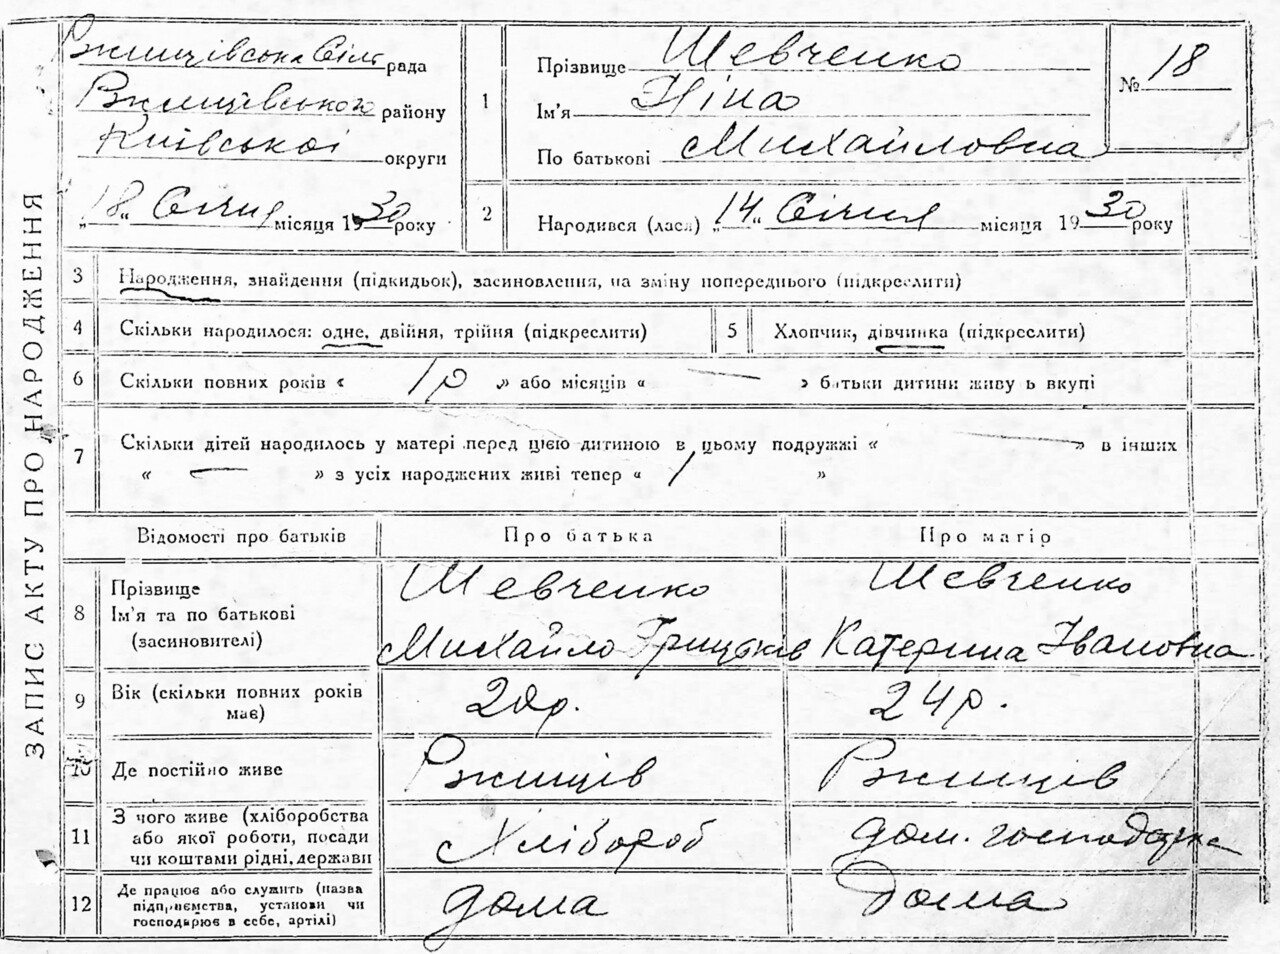 ЗАПИС АКТУ ПРО НАРОДЖЕННЯ
Ржищівська Сіль рада
Ржищівського району
Київської округи
„18“ Січня місяця 1930 року
1
Прізвище Шевченко
Ім'я Ніна
По батькові Михайловна
№ 18
2
Народився (лася) „14“ Січня місяця 1930 року
3 Народження, знайдення (підкидьок), засиновлення, на зміну попереднього (підкреслити)
4 Скільки народилося: одне, двійня, трійня (підкреслити) 5 Хлопчик, дівчинка (підкреслити)
6 Скільки повних років « 1 р » або місяців « — » батьки дитини живуть вкупі
7 Скільки дітей народилось у матері перед цією дитиною в цьому подружжі « — » в інших
« — » з усіх народжених живі тепер « 1 »
Відомості про батьків Про батька Про матір
8 Прізвище
Ім'я та по батькові
(засиновителі)
Шевченко
Михайло Грицьків
Шевченко
Катерина Івановна
9 Вік (скільки повних років
має)
р.
24 р.
10 Де постійно живе Ржищів Ржищів
11 З чого живе (хліборобства
або якої роботи, посади
чи коштами рідні, держави
Хлібороб
дом. господарка
12 Де працює або служить (назва
підприємства, установи чи
господарює в себе, артілі)
дома
Дома